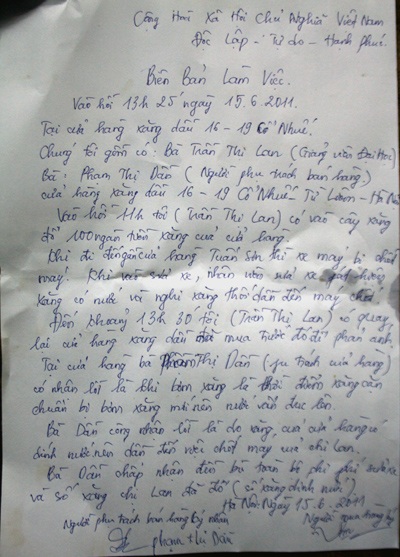 Cộng Hoà Xã Hội Chủ Nghĩa Việt Nam
Độc Lập - Tự do - Hạnh phúc.
Biên Bản Làm Việc.
Vào hồi 13h 25 ngày 15.6.2011.
Tại cửa hàng xăng dầu 16 - 19 Cổ Nhuế.
Chúng tôi gồm có: Bà Trần Thị Lan (Giảng viên Đại Học)
Bà: Phạm Thị Dần (Người phụ trách bán hàng)
cửa hàng xăng dầu 16 - 19 Cổ Nhuế Từ Liêm - Hà Nội
Vào hồi 11h tôi (Trần Thị Lan) có vào cây xăng
đổ 100 ngàn tiền xăng của cửa hàng.
Khi đi đến gần cửa hàng Tuấn Sơn thì xe máy bị chết
máy. Khi vào sửa xe, nhân viên sửa xe
xăng có nước và nghi xăng dẫn đến máy chết.
Đến khoảng 13h 30 tôi (Trần Thị Lan) có quay
lại cửa hàng xăng dầu mua trước đó để phản ánh.
Tại cửa hàng bà Phạm Thị Dần (phụ trách cửa hàng)
có nhận lỗi là khi bơm xăng là thời điểm xăng cạn
chuẩn bị bơm xăng mới nên nước vẩn đục lên.
Bà Dần công nhận lỗi là do xăng của cửa hàng có
dính nước nên dẫn đến việc chết máy của chị Lan.
Bà Dần chấp nhận đền bù toàn bộ phí sửa xe
và số xăng chị Lan đã đổ (vì xăng dính nước)
Hà Nội Ngày 15.6.2011
Người phụ trách bán hàng ký nhận
Người
Phạm Thị Dần